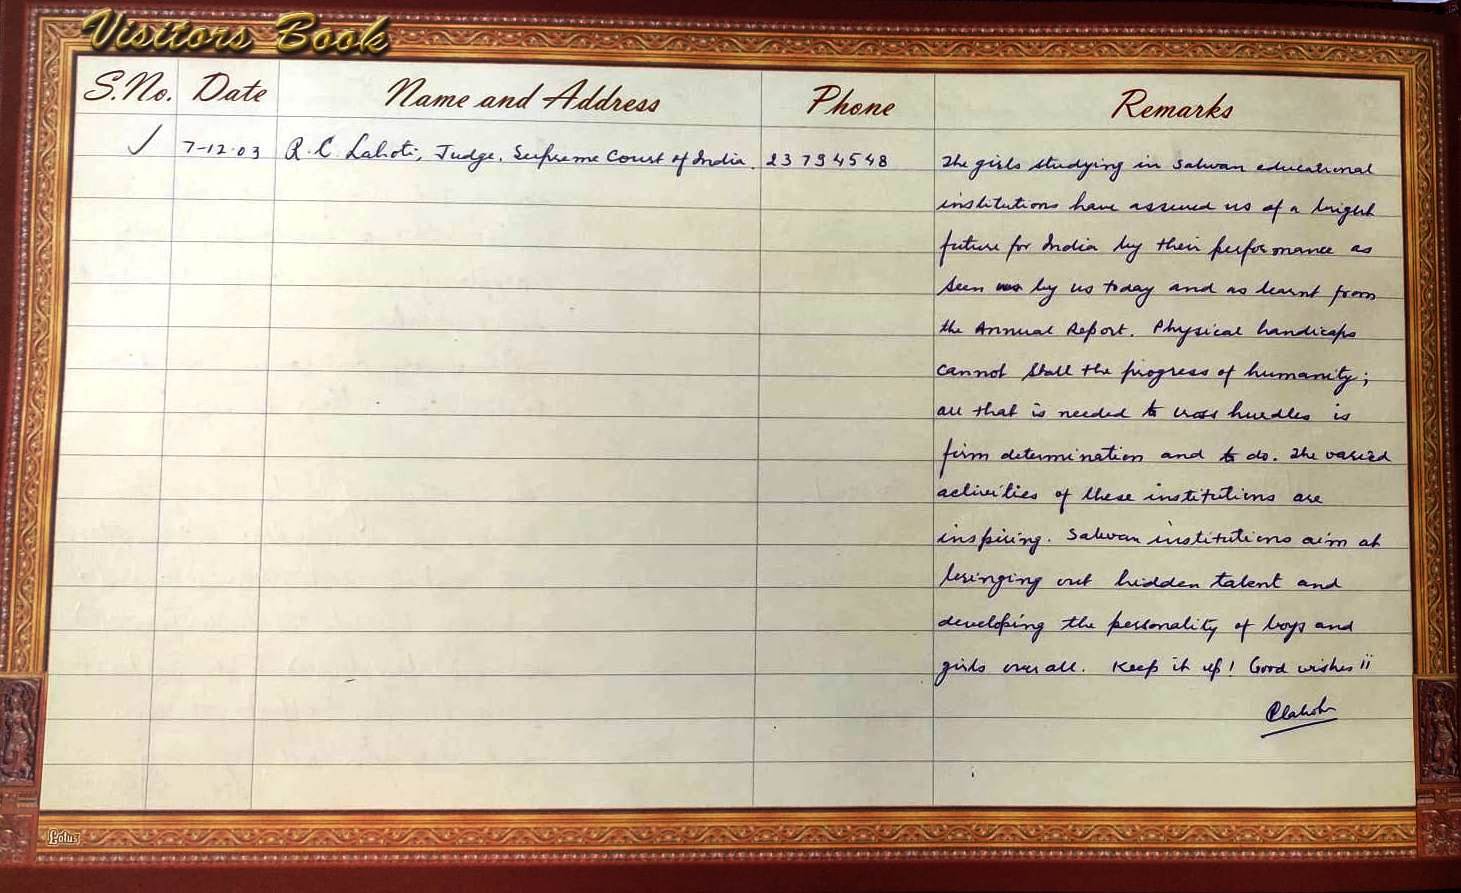 Visitors Book
S.No. Date Name and Address Phone Remarks
✓ 7-12-03 R.C. Lahoti, Judge, Supreme Court of India. 23794548 The girls studying in Salwan educational
institutions have assured us of a bright
future for India by their performance as
seen by us today and as learnt from
the Annual Report. Physical handicaps
cannot stall the progress of humanity;
all that is needed to cross hurdles is
firm determination and to do. The varied
activities of these institutions are
inspiring. Salwan institutions aim at
bringing out hidden talent and
developing the personality of boys and
girls over all. Keep it up! Good wishes!!
RClahoti
Lotus